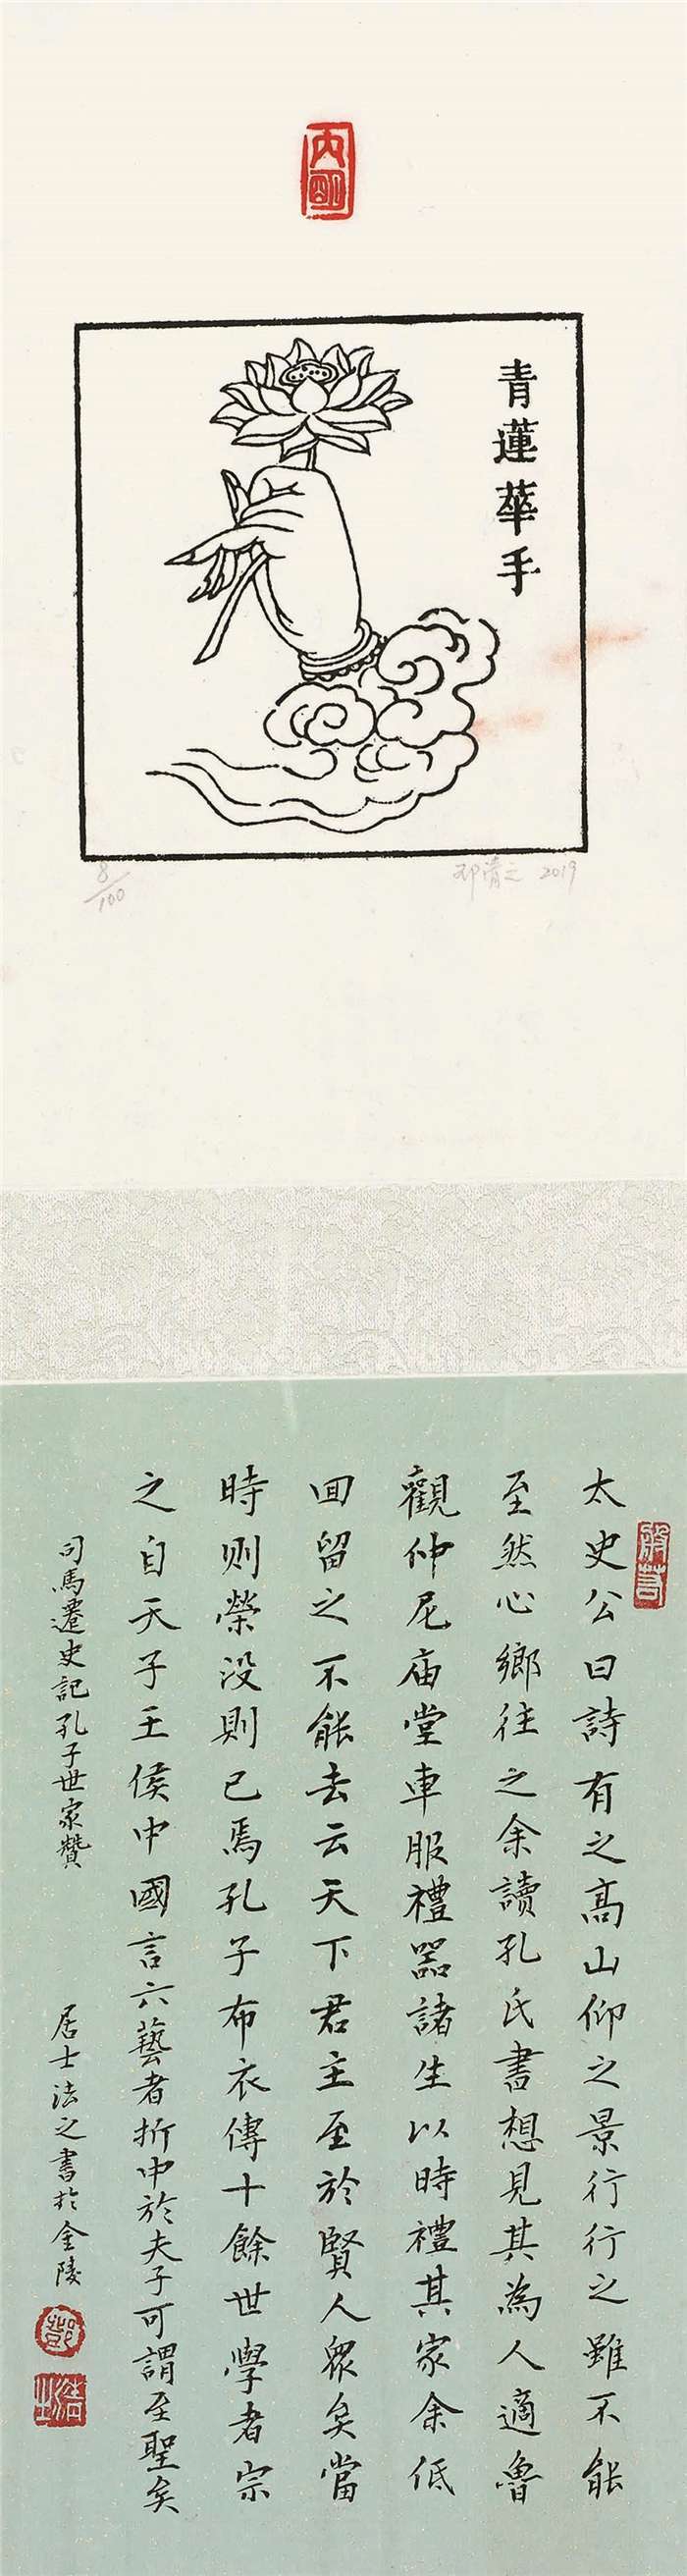 内明
青蓮華手
8/100
邓清之 2019
般若
太史公曰詩有之高山仰之景行行之雖不能
至然心鄉往之余讀孔氏書想見其為人適魯
觀仲尼庙堂車服禮器諸生以時禮其家余低
囬留之不能去云天下君主至於賢人眾矣當
時则榮没則已焉孔子布衣傳十餘世學者宗
之自天子王侯中國言六藝者折中於夫子可謂至聖矣
司馬遷史記孔子世家贊
居士法之書於金陵
鄧